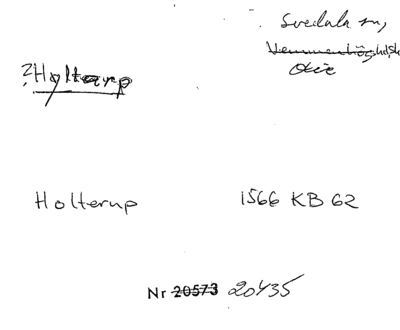 Svedala sn,
Vemmenhögs hd, Sk
Oxie
?Hylterup
Holterup 1566 KB 62
Nr 20573 20435